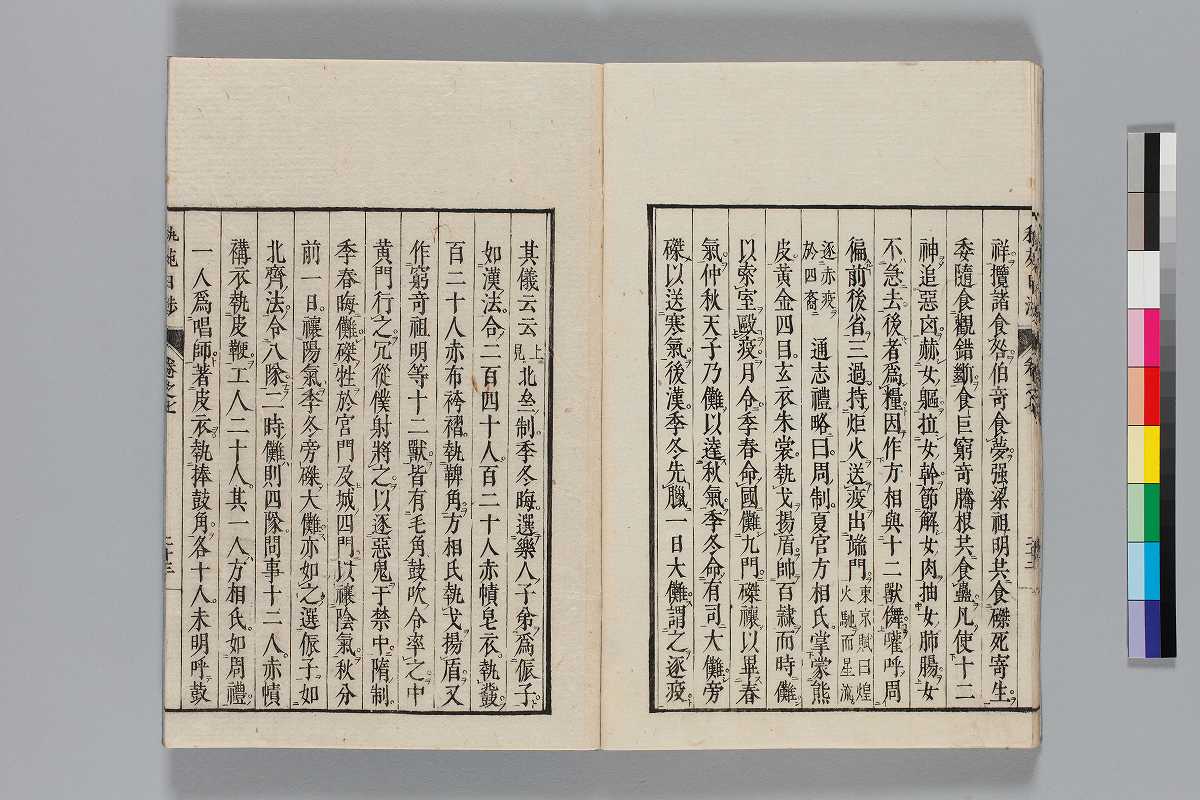 祥攬諸食咎伯奇食夢强梁祖明共食磔死寄生
委隨食觀錯斷食巨窮奇騰根共食蠱凡使十二
神追惡凶赫女軀拉女幹節解女肉抽女肺腸女
不急去後者爲糧因作方相與十二獸儛嚾呼周
徧前後省三過持炬火送疫出端門東京賦曰煌火馳而星流
逐赤疫於四裔通志禮略曰周制夏官方相氏掌蒙熊
皮黄金四目玄衣朱裳執戈揚盾帥百隷而時儺
以索室毆疫月令季春命國儺九門磔禳以畢春
氣仲秋天子乃儺以達秋氣季冬命有司大儺旁
磔以送寒氣後漢季冬先臘一日大儺謂之逐疫
其儀云云見上北齊制季冬晦選樂人子弟爲侲子
如漢法合二百四十人百二十人赤幘皂衣執鼗
百二十人赤布袴褶執鞞角方相氏執戈揚盾又
作窮奇祖明等十二獸皆有毛角鼓吹令率之中
黄門行之冗從僕射將之以逐惡鬼于禁中隋制
季春晦儺磔牲於宮門及城四門以禳陰氣秋分
前一日禳陽氣季冬旁磔大儺亦如之選侲子如
北齊法令八隊二時儺則四隊問事十二人赤幘
褠衣執皮鞭工人二十人其一人方相氏如周禮
一人爲唱師著皮衣執捧鼓角各十人未明呼鼓
卷之七
二十三